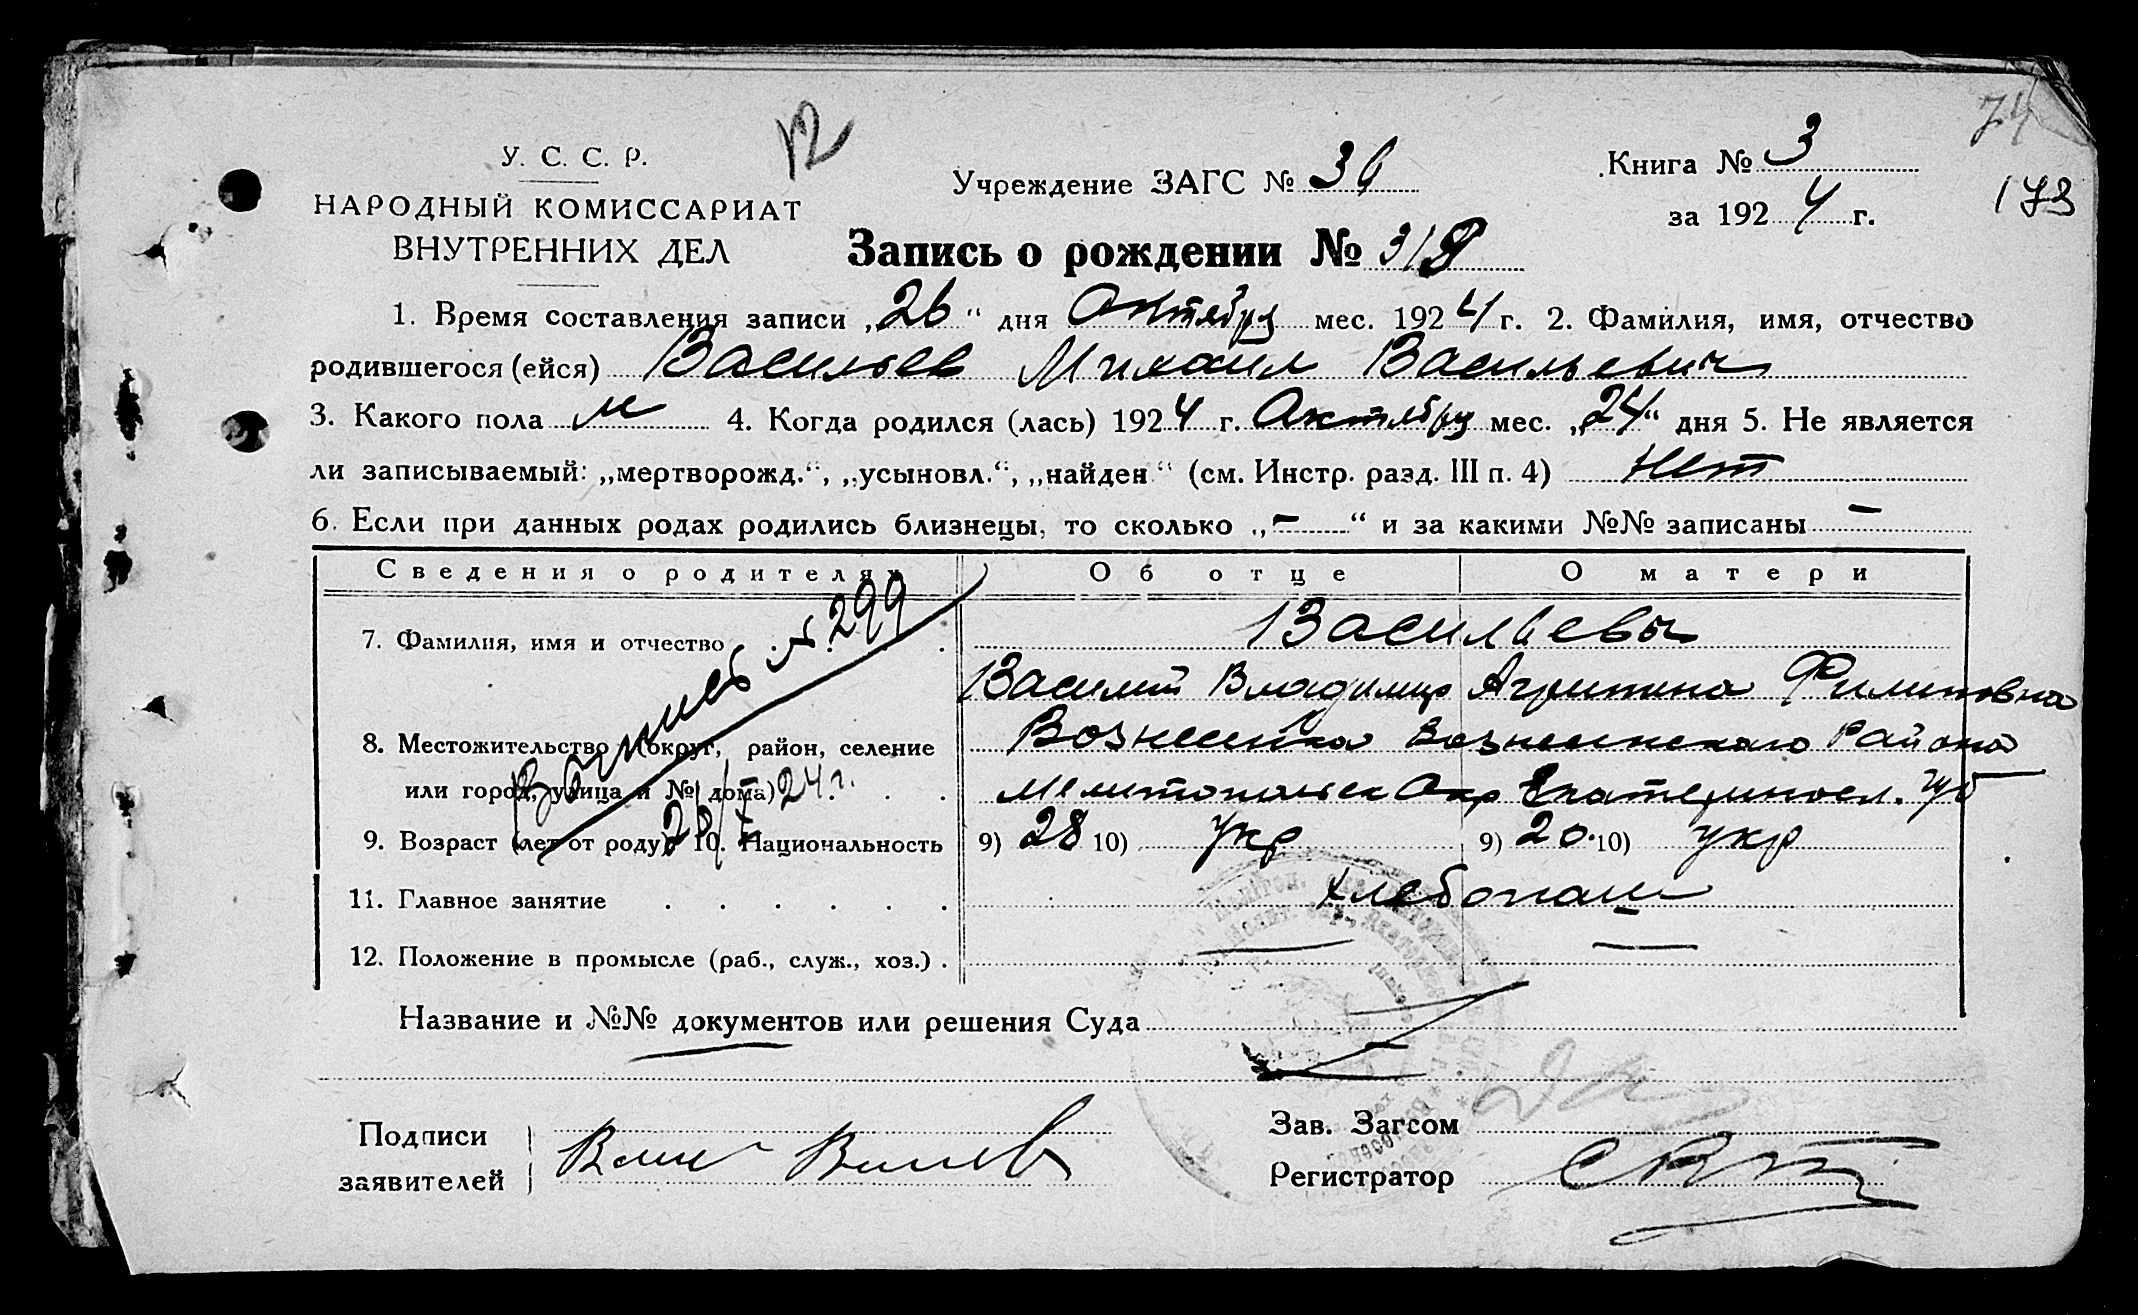 74
12
У. С. С. Р.
Учреждение ЗАГС № 36
Книга № 3
173
НАРОДНЫЙ КОМИССАРИАТ
за 1924 г.
ВНУТРЕННИХ ДЕЛ
Запись о рождении № 318
1. Время составления записи „26“ дня Октября мес. 1924 г. 2. Фамилия, имя, отчество
родившегося (ейся) Васильев Михаил Васильевич
3. Какого пола м 4. Когда родился (лась) 1924 г. Октября мес. „24“ дня 5. Не является
ли записываемый: „мертворожд.“, „усыновл.“, „найден“ (см. Инстр. разд. III п. 4) нет
6. Если при данных родах родились близнецы, то сколько „-“ и за какими №№ записаны -
Сведения о родителях Об отце О матери
7. Фамилия, имя и отчество Васильевы
№ 299
Василий Владимир Агрипина Филиповна
8. Местожительство (округ, район, селение Вознесенка Вознесенского Района
или город, улица и № дома) Мелитопольск Окр Екатериносл. губ
24 г.
9. Возраст (лет от роду) 10. Национальность 9) 28 10) укр 9) 20. 10) укр
11. Главное занятие хлебопаш
12. Положение в промысле (раб., служ., хоз.) — —
Название и №№ документов или решения Суда
Подписи
заявителей
Зав. Загсом
Регистратор